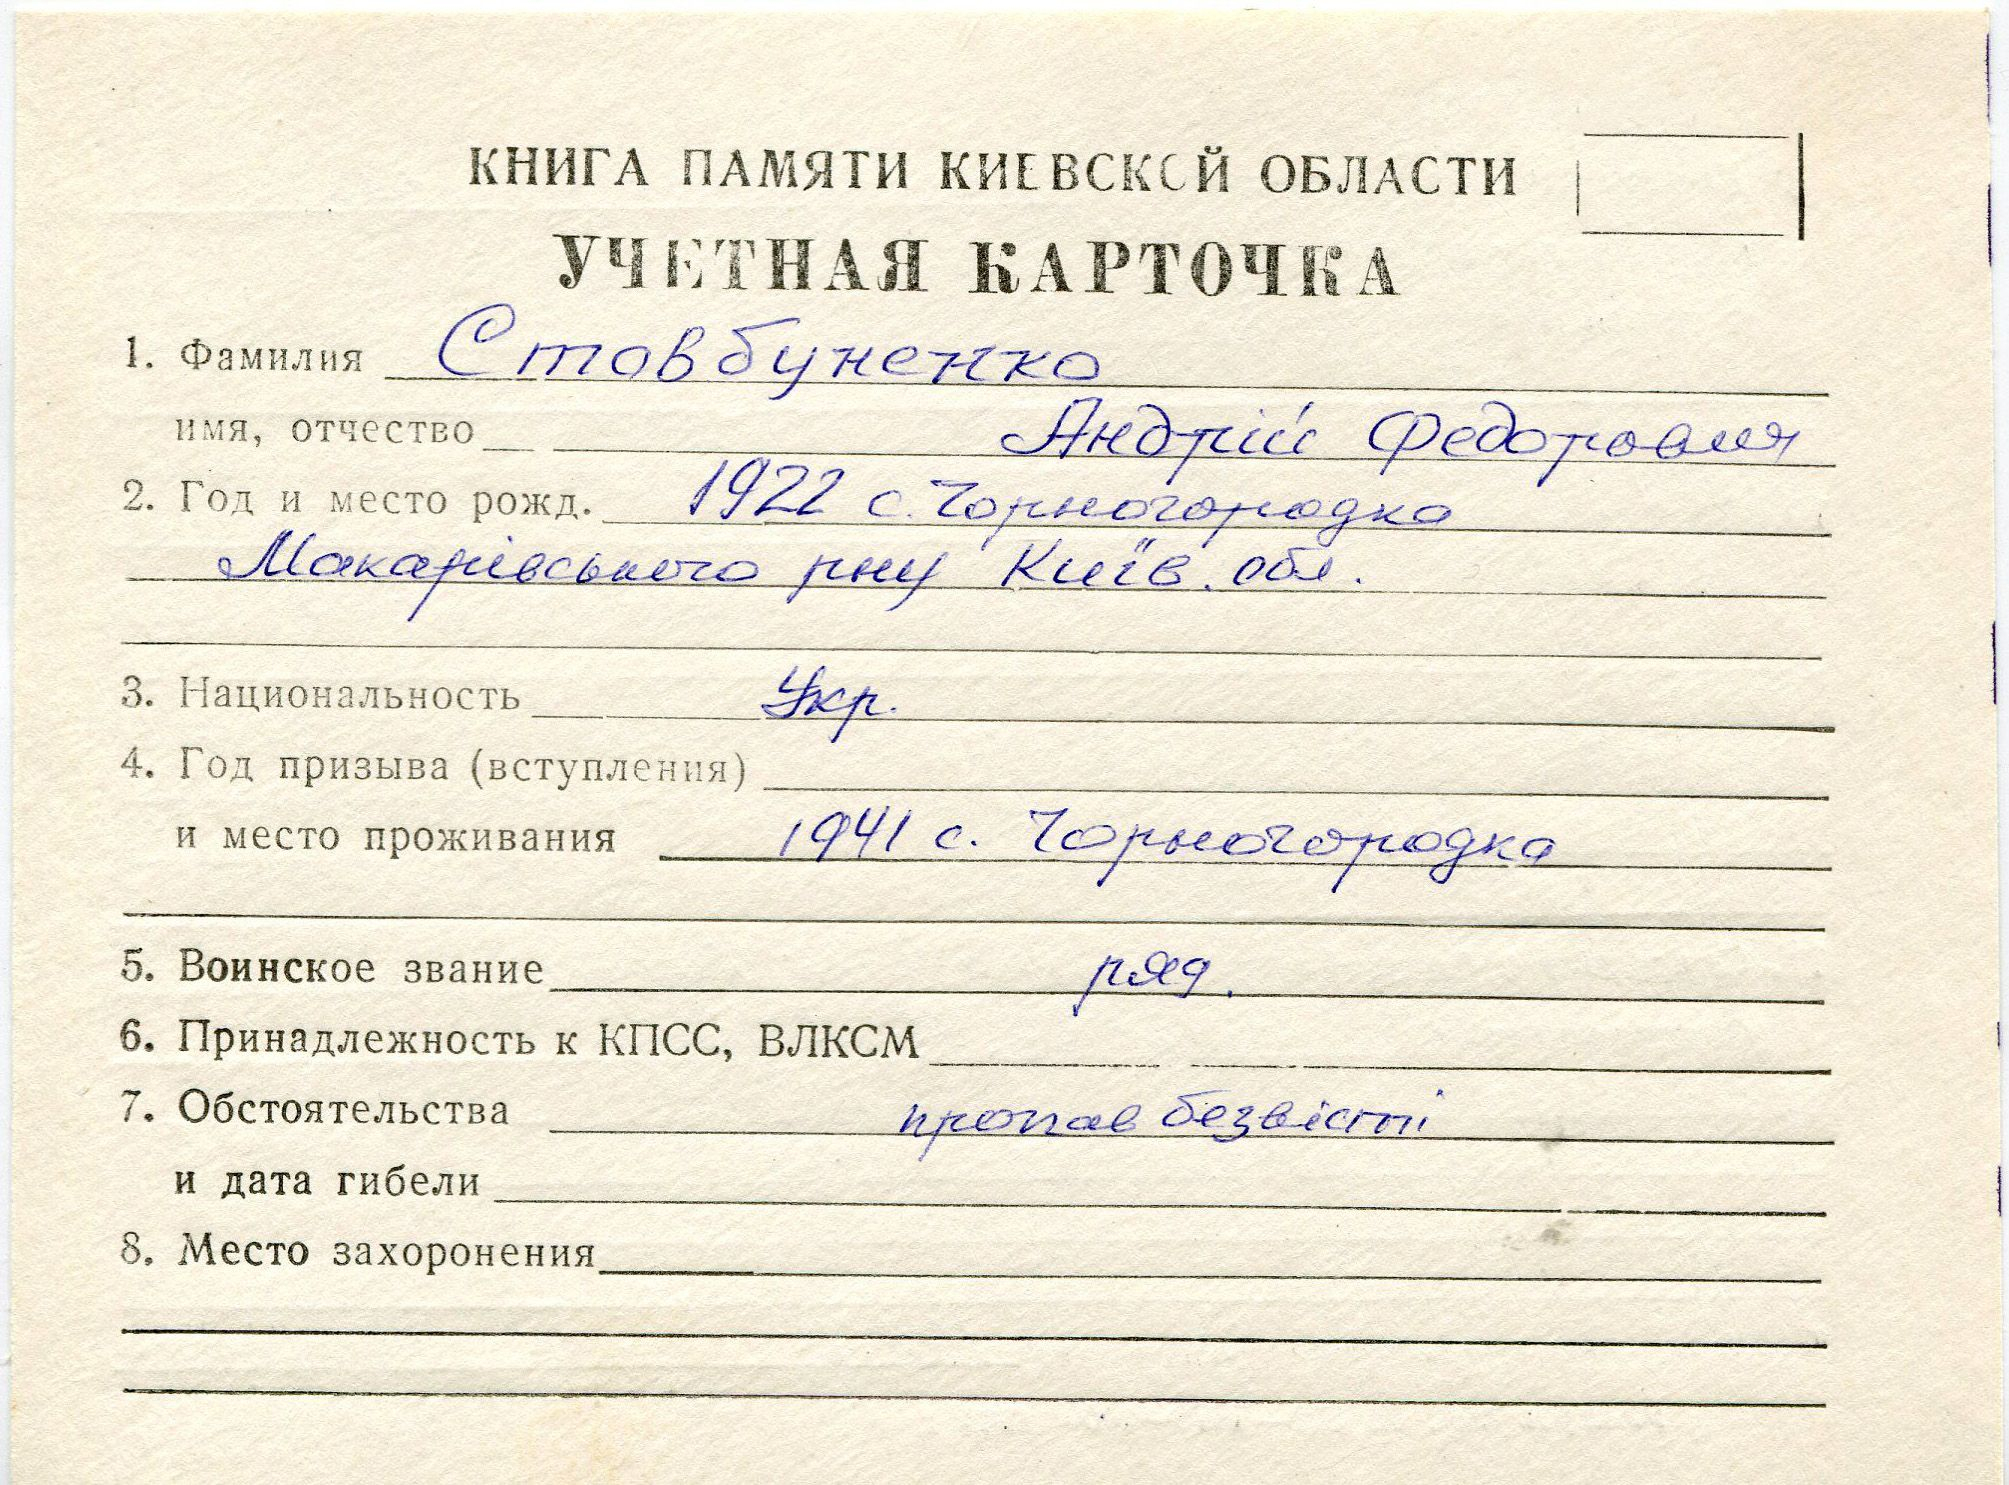 КНИГА ПАМЯТИ КИЕВСКОЙ ОБЛАСТИ
УЧЕТНАЯ КАРТОЧКА
1. Фамилия Стовбуненко
имя, отчество Андрій Федорович
2. Год и место рожд. 1922 с. Чорногородка
Макарівського рну Київ. обл.
3. Национальность Укр.
4. Год призыва (вступления)
и место проживания 1941 с. Чорногородка
5. Воинское звание ряд.
6. Принадлежность к КПСС, ВЛКСМ
7. Обстоятельства пропав безвісті
и дата гибели
8. Место захоронения